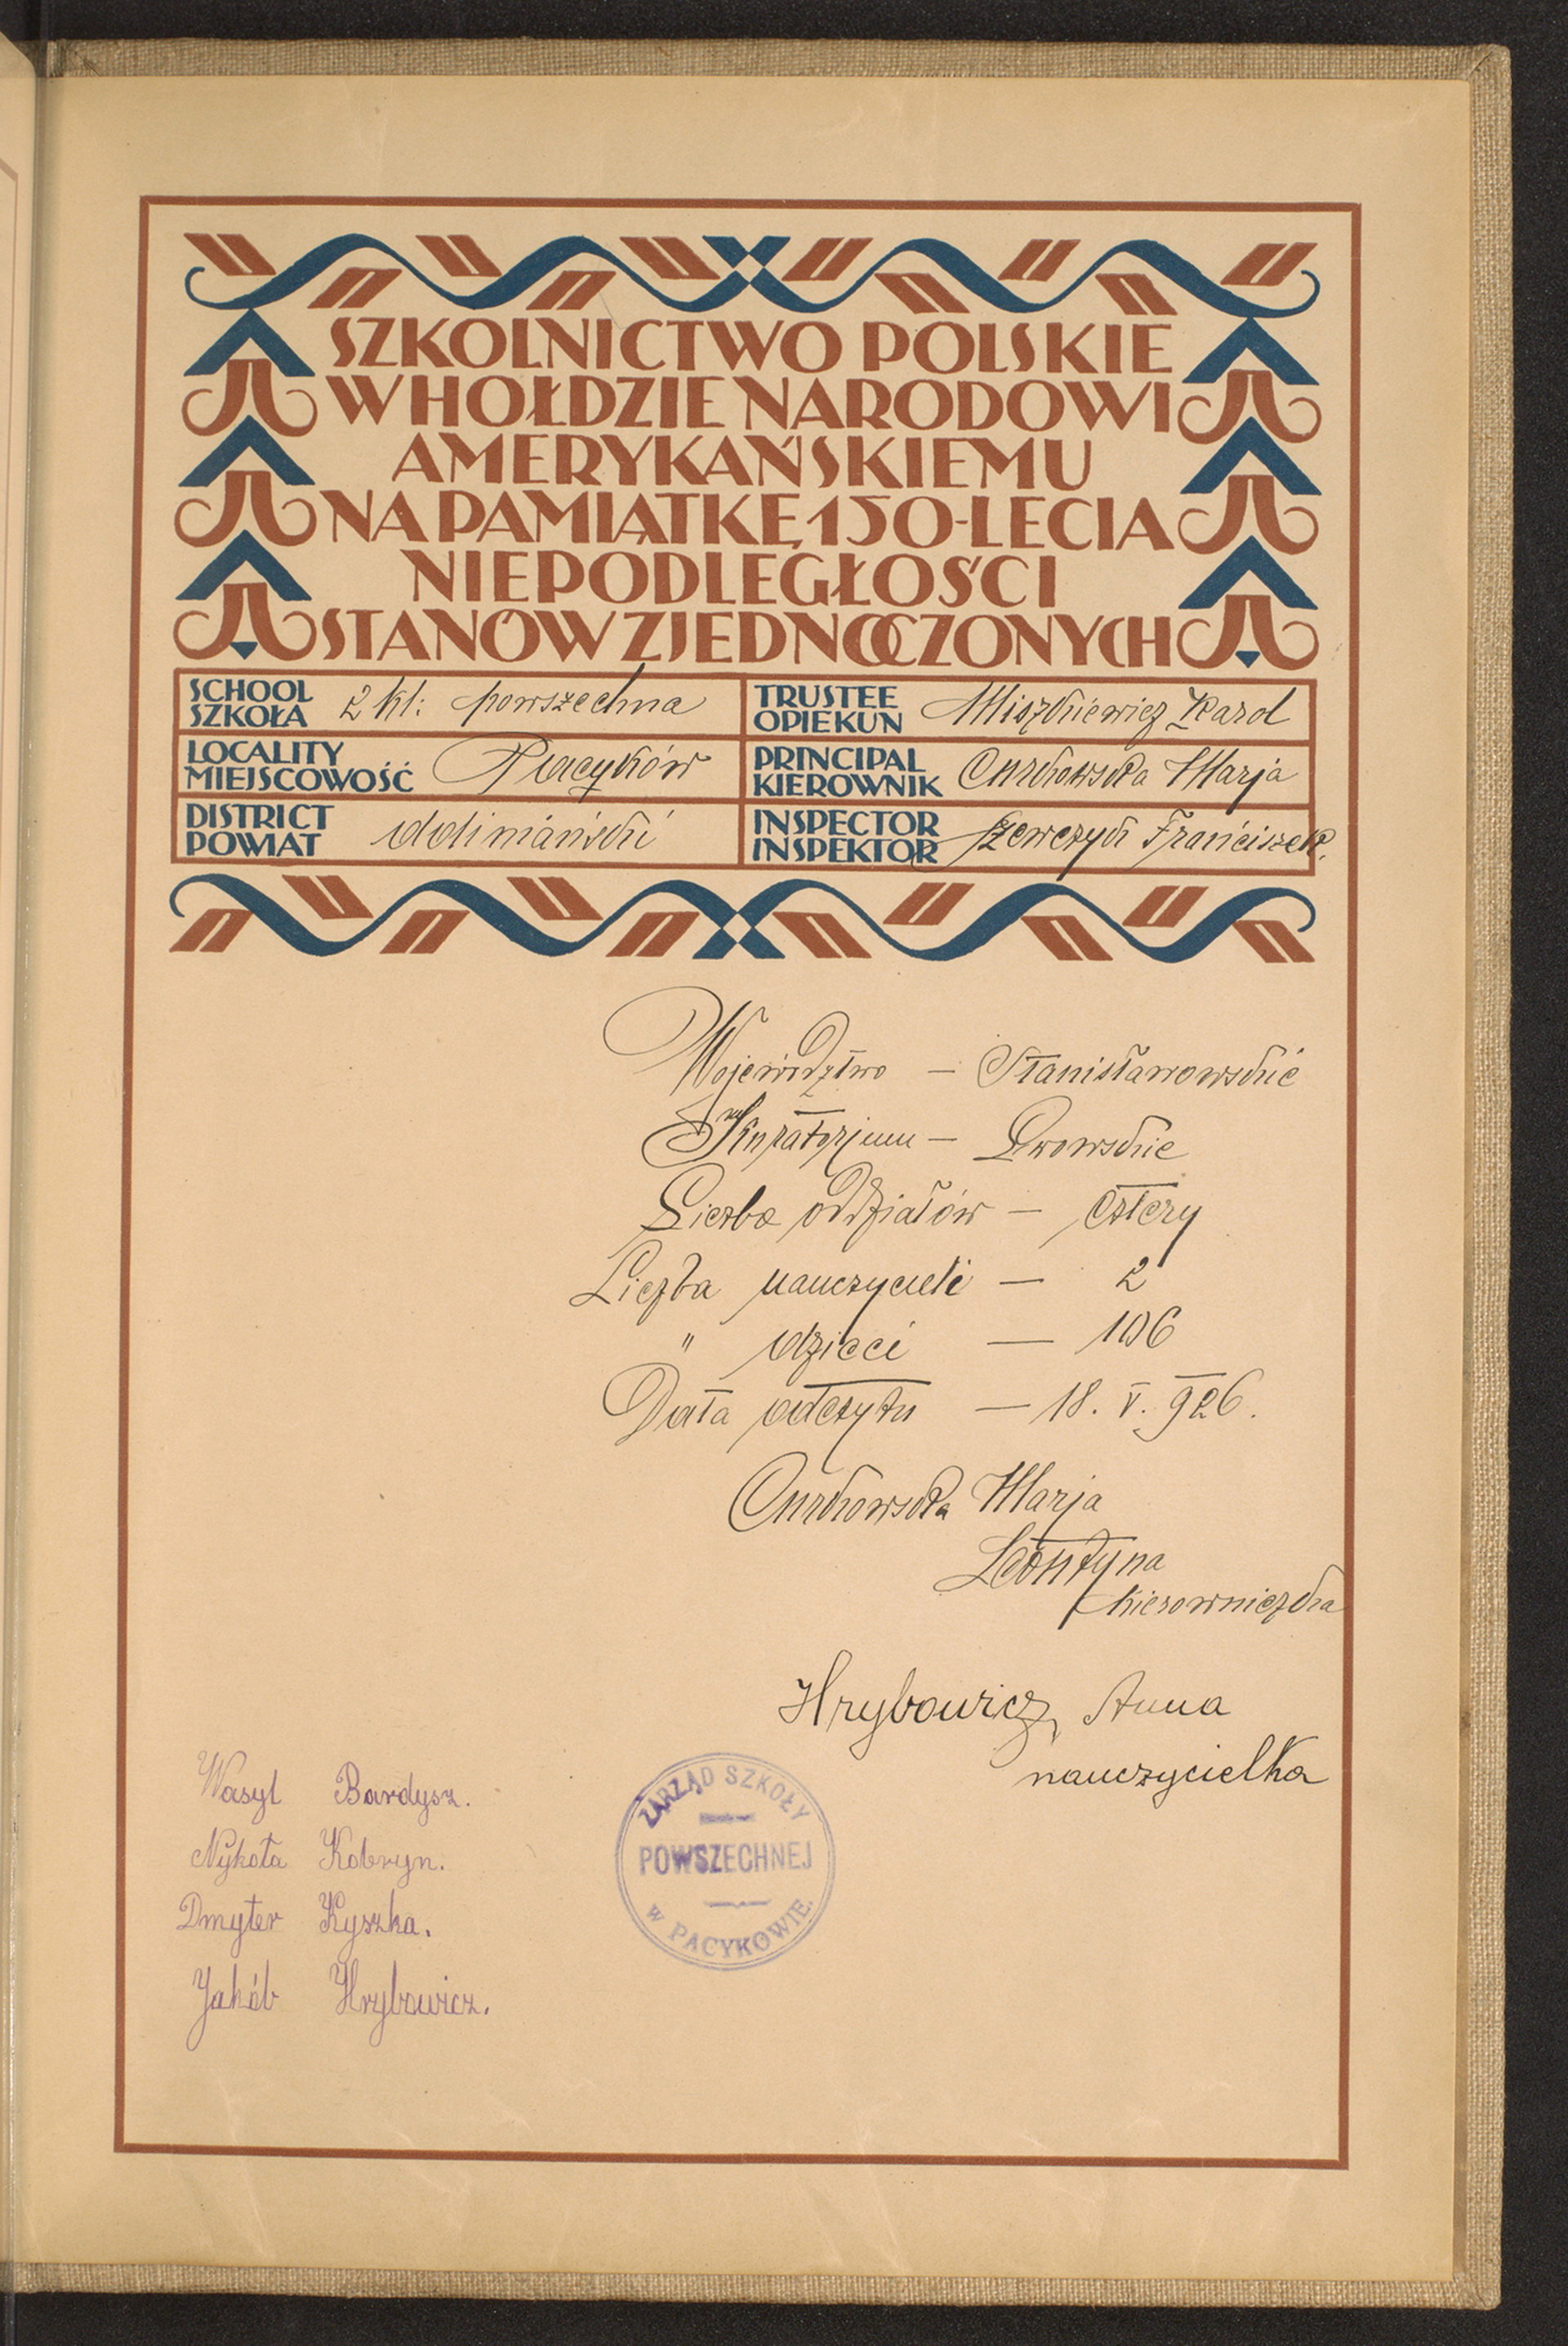 SZKOLNICTWO POLSKIE
W HOŁDZIE NARODOWI
AMERYKAŃSKIEMU
NA PAMIĄTKĘ 150-LECIA
NIEPODLEGŁOŚCI
STANÓW ZJEDNOCZONYCH
SCHOOL
SZKOŁA 2 kl: powszechna
TRUSTEE
OPIEKUN Miszkiewicz Karol
LOCALITY
MIEJSCOWOŚĆ Pacyków
PRINCIPAL
KIEROWNIK Curkowska Marja
DISTRICT
POWIAT doliniański
INSPECTOR
INSPEKTOR Szewczyk Franciszek.
Województwo — Stanisławowskie
Kuratorjum — Lwowskie
Liczba oddziałów — cztery
Liczba nauczycieli — 2
" dzieci — 106
Data odczytu — 18. V. 926.
Curkowska Marja
Leontyna
kierowniczka
Hrybowicz Anna
nauczycielka
Wasyl Bardysz.
Nykoła Kobryn.
Dmyter Kyszka.
Jakób Hrybowicz.
ZARZĄD SZKOŁY
POWSZECHNEJ
w PACYKOWIE.